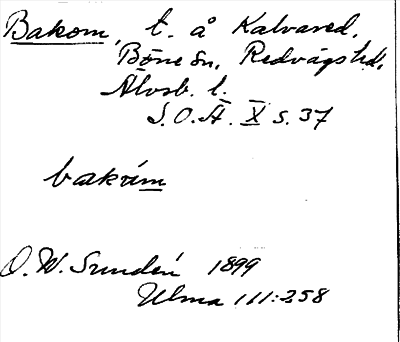 Bakom, t. å Kalvared,
Böne sn, Redvägs hd,
Älvsb. l.
S.O.Ä. X s. 37
bakàm
O. W. Sundén 1899
Ulma 111:258